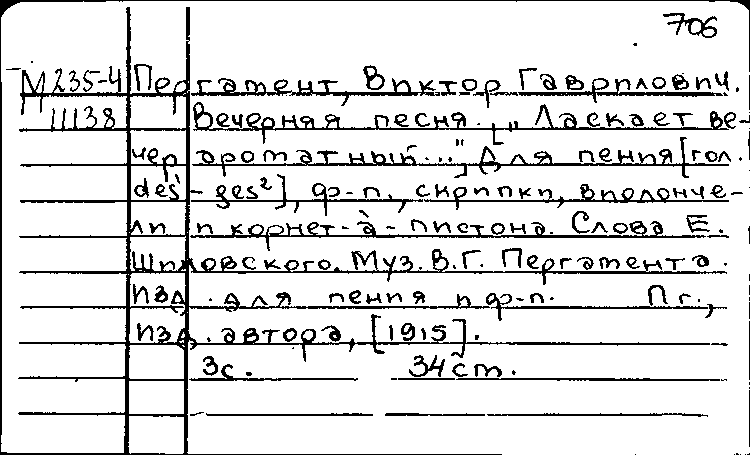 706
М 235-4 Пергамент, Виктор Гаврилович.
11138 Вечерняя песня. ["Ласкает ве-
чер ароматный..."] Для пения [гол.
des¹-ges²], ф-п., скрипки, виолонче-
ли и корнет-à-пистона. Слова Е.
Шиловского. Муз. В.Г. Пергамента.
Изд. для пения и ф-п. Пг.,
изд. автора, [1915].
3с. 34 см.